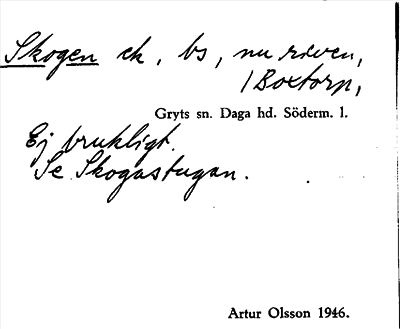 Skogen ek, bs, nu riven,
/Boxtorp,
Gryts sn. Daga hd. Söderm. l.
Ej brukligt.
Se Skogastugan.
Artur Olsson 1946.